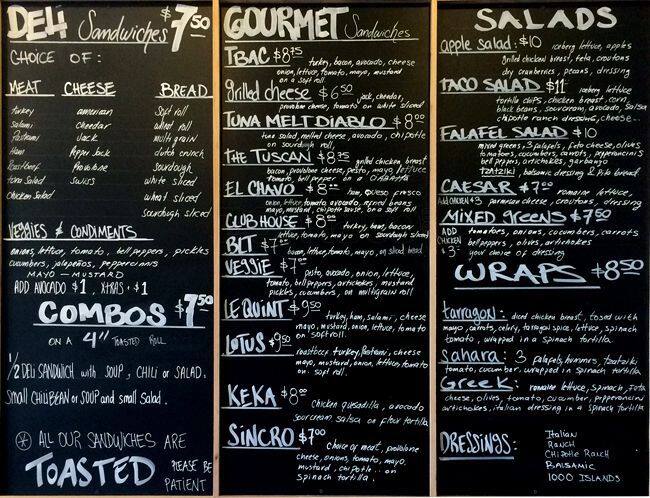 DELi Sandwiches $7.50
CHOICE OF:
MEAT CHEESE BREAD
turkey american Soft roll
salami cheedar wheat roll
Pastrami Jack multi grain
Ham Pepper Jack dutch crunch
Roastbeef Provolone sourdough
tuna Salad swiss white sliced
chicken Salad wheat sliced
sourdough sliced
VEGGIES & CONDIMENTS
onions, lettuce, tomato, bell peppers, pickles
cucumbers, jalapeños, pepperoncinis
MAYO — MUSTARD
ADD AVOCADO $1, XTRAS · $1
COMBOS $7.50
ON A 4" TOASTED ROLL
1/2 DELI SANDWICH with SOUP, CHILI or SALAD.
Small CHILI BEAN or SOUP and small Salad.
* ALL OUR SANDWICHES ARE
TOASTED PLEASE BE
PATIENT
GOURMET Sandwiches
TBAC $8.75 turkey, bacon, avocado, cheese
onion, lettuce, tomato, mayo, mustard
on a soft roll
grilled cheese $6.50 jack, cheedar,
provolone cheese, tomato on white sliced
TUNA MELT DIABLO $8.00
tuna salad, melted cheese, avocado, chipotle
on sourdough roll.
THE TUSCAN $8.75 grilled chicken, breast
bacon, provolone cheese, pesto, mayo, lettuce
tomato, bell pepper on a
EL CHAVO $8.00 ham, queso fresco
onion, lettuce, tomato, avocado, refried beans
mayo, mustard, chipotle sauce, on a soft roll
CLUB HOUSE $8.00 turkey, ham, bacon,
lettuce, tomato, mayo on sourdough sliced
BLT $7.00 bacon, lettuce, tomato, mayo, on sliced bread
VEGGIE $7.00 pesto, avocado, onion, lettuce,
tomato, bell peppers, artichokes, mustard
pickles, cucumbers, on multigrain roll
LE QUINT $9.50 turkey, ham, salami, cheese
mayo, mustard, onion, lettuce, tomato
on soft roll.
LOTUS $9.50 roastbeef, turkey, Pastrami, cheese
mayo, mustard, onion, lettuce, tomato
on soft roll.
KEKA $8.00 Chicken quesadilla, avocado
sour cream, salsa on flour tortilla
SINCRO $7.00 choice of meat, provolone
cheese, onions, tomato, mayo,
mustard, chipotle.. on
Spinach tortilla.
SALADS
apple salad: $10 iceberg lettuce, apples
grilled chicken breast, feta, croutons
dry cranberries, pecans, dressing
TACO SALAD $11 iceberg lettuce
tortilla chips, chicken breast, corn,
black beans, sourcream, avocado, Salsa
chipotle ranch dressing, cheese..
FALAFEL SALAD $10
mixed greens, 3 falafels, feta cheese, olives
tomatoes, cucumbers, carrots, pepperoncinis
bell peppers, artichokes, garbanzo
tzatziki, balsamic dressing & Pita bread
CAESAR $7.00 romaine lettuce,
ADD CHICKEN $3 parmesan cheese, croutons, dressing
MIXED greens $7.50
ADD CHICKEN $3 tomatoes, onions, cucumbers, carrots
bell peppers, olives, artichokes
your choice of dressing
WRAPS $8.50
tarragon: diced chicken breast, tossed with
mayo, carrots, celery, tarragon spice, lettuce, spinach
tomato, wrapped in a spinach tortilla.
Sahara: 3 falafels, hummus, tzatziki
tomato, cucumber, wrapped in spinach tortilla
Greek: romaine lettuce, Spinach, feta
cheese, olives, tomato, cucumber, pepperoncini
artichokes, italian dressing in a Spinach tortilla.
DRESSINGS: Italian
RANCH
CHIPOTLE RANCH
BALSAMIC
1000 ISLANDS